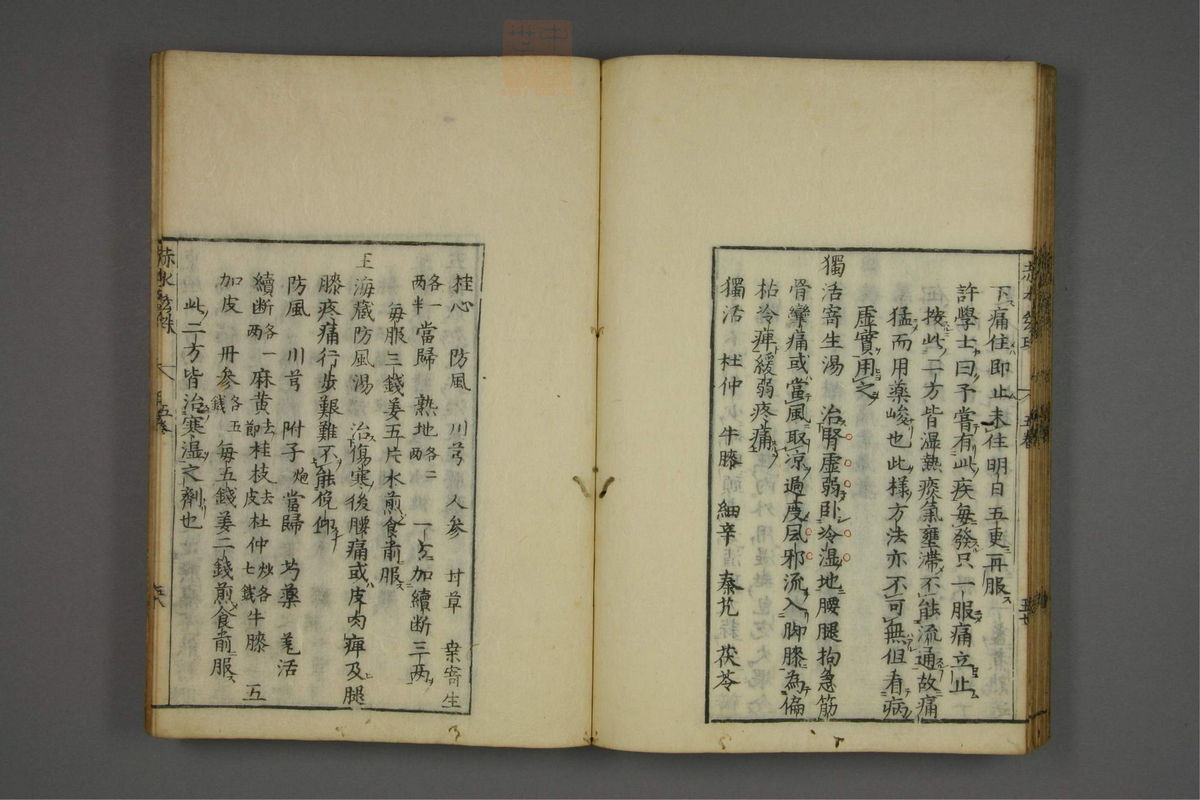 下痛住即止未住明日五更再服
許學士曰予嘗有此疾每發只一服痛立止
按此二方皆湿熱痰氣壅滞不能流通故痛
猛而用藥峻也此様方法亦不可無但看病
虛實用之
獨活寄生湯 治腎虛弱卧冷湿地腰腿拘急筋
骨攣痛或當風取凉過度風邪流入脚膝為偏
枯冷痺緩弱疼痛
獨活 杜仲 牛膝 細辛 秦艽 茯苓
桂心 防風 川芎 人参 甘草 桒寄生
各一两半 當歸 熟地各二两 一方加續断三两
每服三錢姜五片水煎食前服
王海藏防風湯 治傷寒後腰痛或皮肉痺及腿
膝疼痛行步艱難不能俛仰
防風 川芎 附子炮 當歸 芍藥 羌活
續断各一两 麻黄去節 桂枝去皮 杜仲炒各七錢 牛膝 五
加皮 丹参各五錢 每五錢姜二錢煎食前服
此二方皆治寒湿之劑也